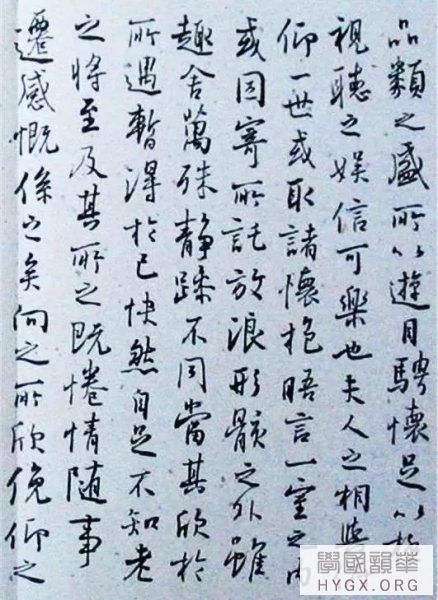 品類之盛所以遊目騁懷足以極
視聽之娛信可樂也夫人之相與
仰一世或取諸懷抱晤言一室之內
或因寄所託放浪形骸之外雖
趣舍萬殊静躁不同當其欣於
所遇暫得於己快然自足不知老
之將至及其所之既惓情随事
遷感慨係之矣向之所欣俛仰之
學國韻華
HYGX.ORG